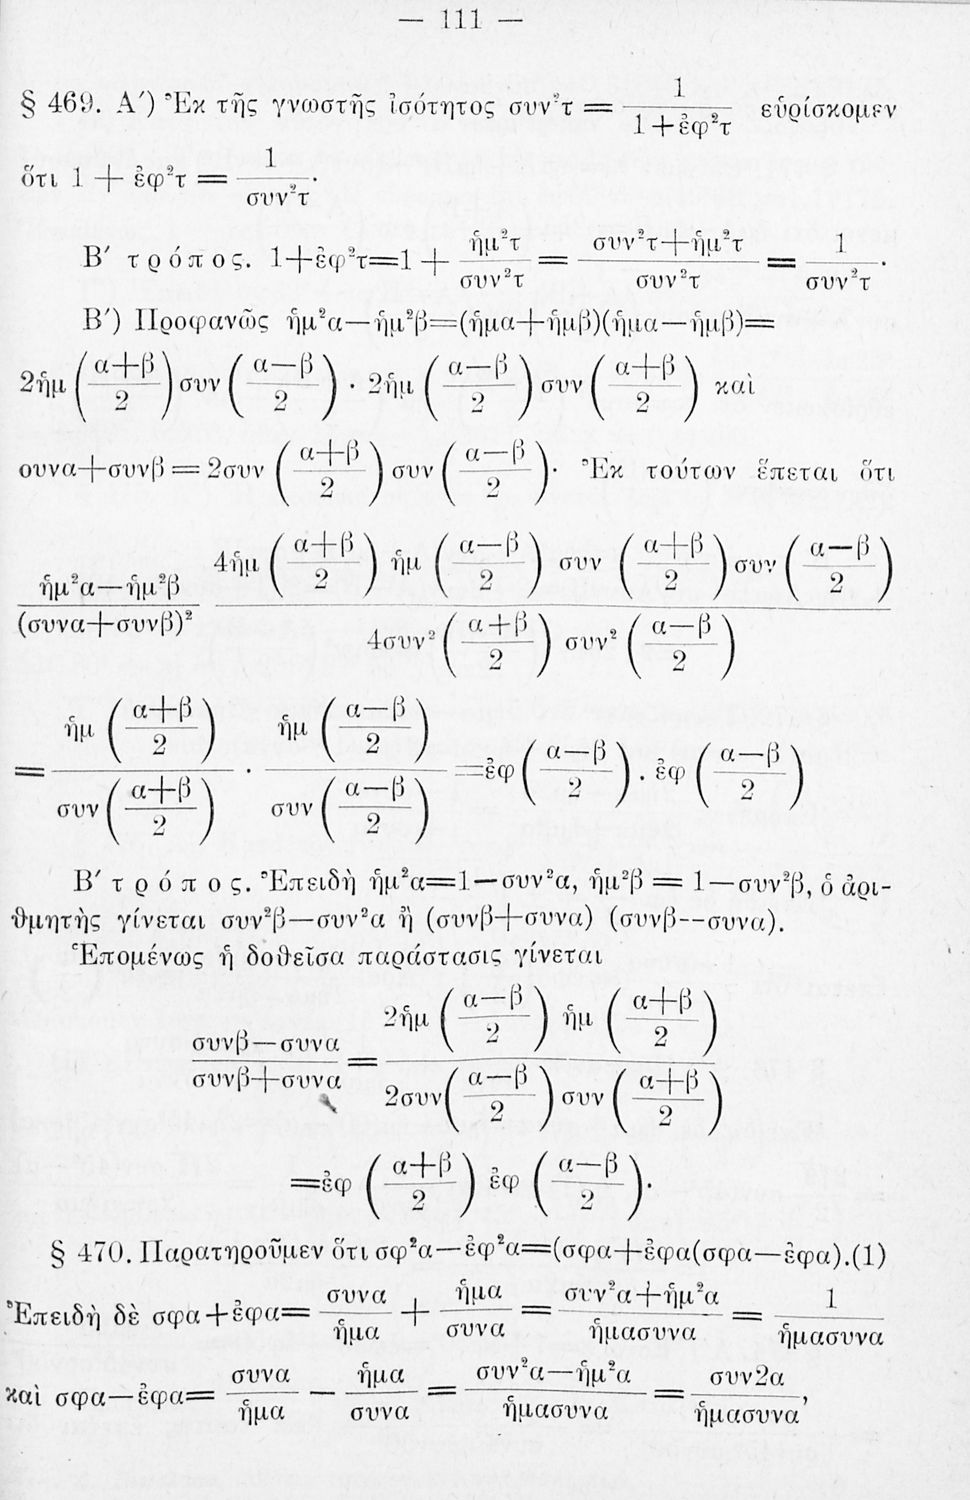 — 111 —
§ 469. Α′) Ἐκ τῆς γνωστῆς ἰσότητος συν²τ = 1 / (1 + ἐφ²τ) εὑρίσκομεν
ὅτι 1 + ἐφ²τ = 1 / συν²τ.
Β′ τρόπος. 1+ἐφ²τ=1 + ἡμ²τ / συν²τ = (συν²τ+ἡμ²τ) / συν²τ = 1 / συν²τ.
Β′) Προφανῶς ἡμ²α—ἡμ²β=(ἡμα+ἡμβ)(ἡμα—ἡμβ)=
2ημ ((α+β) / 2) συν ((α—β) / 2) · 2ἡμ ((α—β) / 2) συν ((α+β) / 2) καὶ
ουνα+συνβ = 2συν ((α+β) / 2) συν ((α—β) / 2). Ἐκ τούτων ἕπεται ὅτι
(ἡμ²α—ἡμ²β) / (συνα+συνβ)² 4ἡμ ((α+β) / 2) ἡμ ((α—β) / 2) συν ((α+β) / 2) συν ((α—β) / 2) / 4συν² ((α+β) / 2) συν² ((α—β) / 2)
= ἡμ ((α+β) / 2) / συν ((α+β) / 2) · ἡμ ((α—β) / 2) / συν ((α—β) / 2) =ἐφ ((α—β) / 2) . ἐφ ((α—β) / 2)
Β′ τρόπος. Ἐπειδὴ ἡμ²α=1—συν²α, ἡμ²β = 1—συν²β, ὁ ἀρι-
θμητὴς γίνεται συν²β—συν²α ἢ (συνβ+συνα) (συνβ--συνα).
Ἑπομένως ἡ δοθεῖσα παράστασις γίνεται
(συνβ—συνα) / (συνβ+συνα) = 2ἡμ ((α—β) / 2) ἡμ ((α+β) / 2) / 2συν ((α—β) / 2) συν ((α+β) / 2)
=ἐφ ((α+β) / 2) ἐφ ((α—β) / 2).
§ 470. Παρατηροῦμεν ὅτι σφ²α—ἐφ²α=(σφα+ἐφα(σφα—ἐφα).(1)
Ἐπειδὴ δὲ σφα+ἐφα= συνα / ἡμα + ἡμα / συνα = (συν²α+ἡμ²α) / ἡμασυνα = 1 / ἡμασυνα
καὶ σφα—ἐφα= συνα / ἡμα — ἡμα / συνα = (συν²α—ἡμ²α) / ἡμασυνα = συν2α / ἡμασυνα,